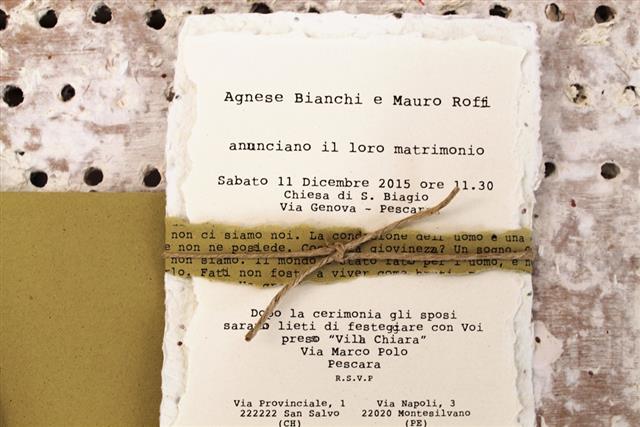 Agnese Bianchi e Mauro Roffi
anunciano il loro matrimonio
Sabato 11 Dicembre 2015 ore 11.30
Chiesa di S. Biagio
Via Genova - Pescara
non ci siamo noi. La condizione dell'uomo è una
e non ne possiede. Cos'è la giovinezza? Un sogno.
non siamo. Il mondo è stato fatto per l'uomo, e
Fatti non foste a viver come bruti
Dopo la cerimonia gli sposi
sarano lieti di festeggiare con Voi
preso "Villa Chiara"
Via Marco Polo
Pescara
R.S.V.P
Via Provinciale, 1 Via Napoli, 3
222222 San Salvo 22020 Montesilvano
(CH) (PE)